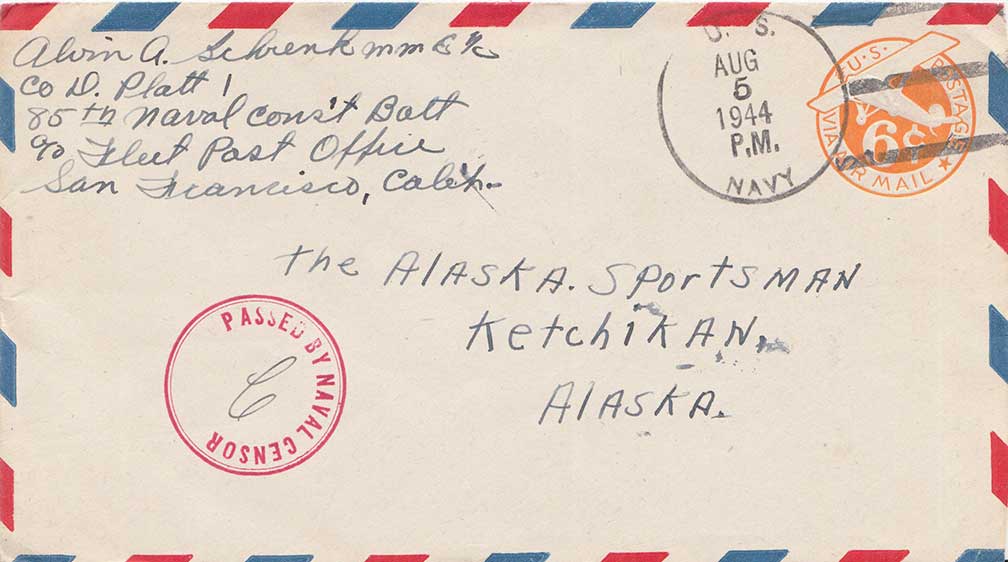 Alvin A. Schrenk MM 2/c
Co D. Platt 1
85th Naval Const Batt
c/o Fleet Post Office
San Francisco, Calif.
U. S.
AUG
5
1944
P.M.
NAVY
U.S. POSTAGE
6¢
VIA AIR MAIL
the Alaska. Sportsman
Ketchikan,
Alaska.
PASSED BY NAVAL CENSOR